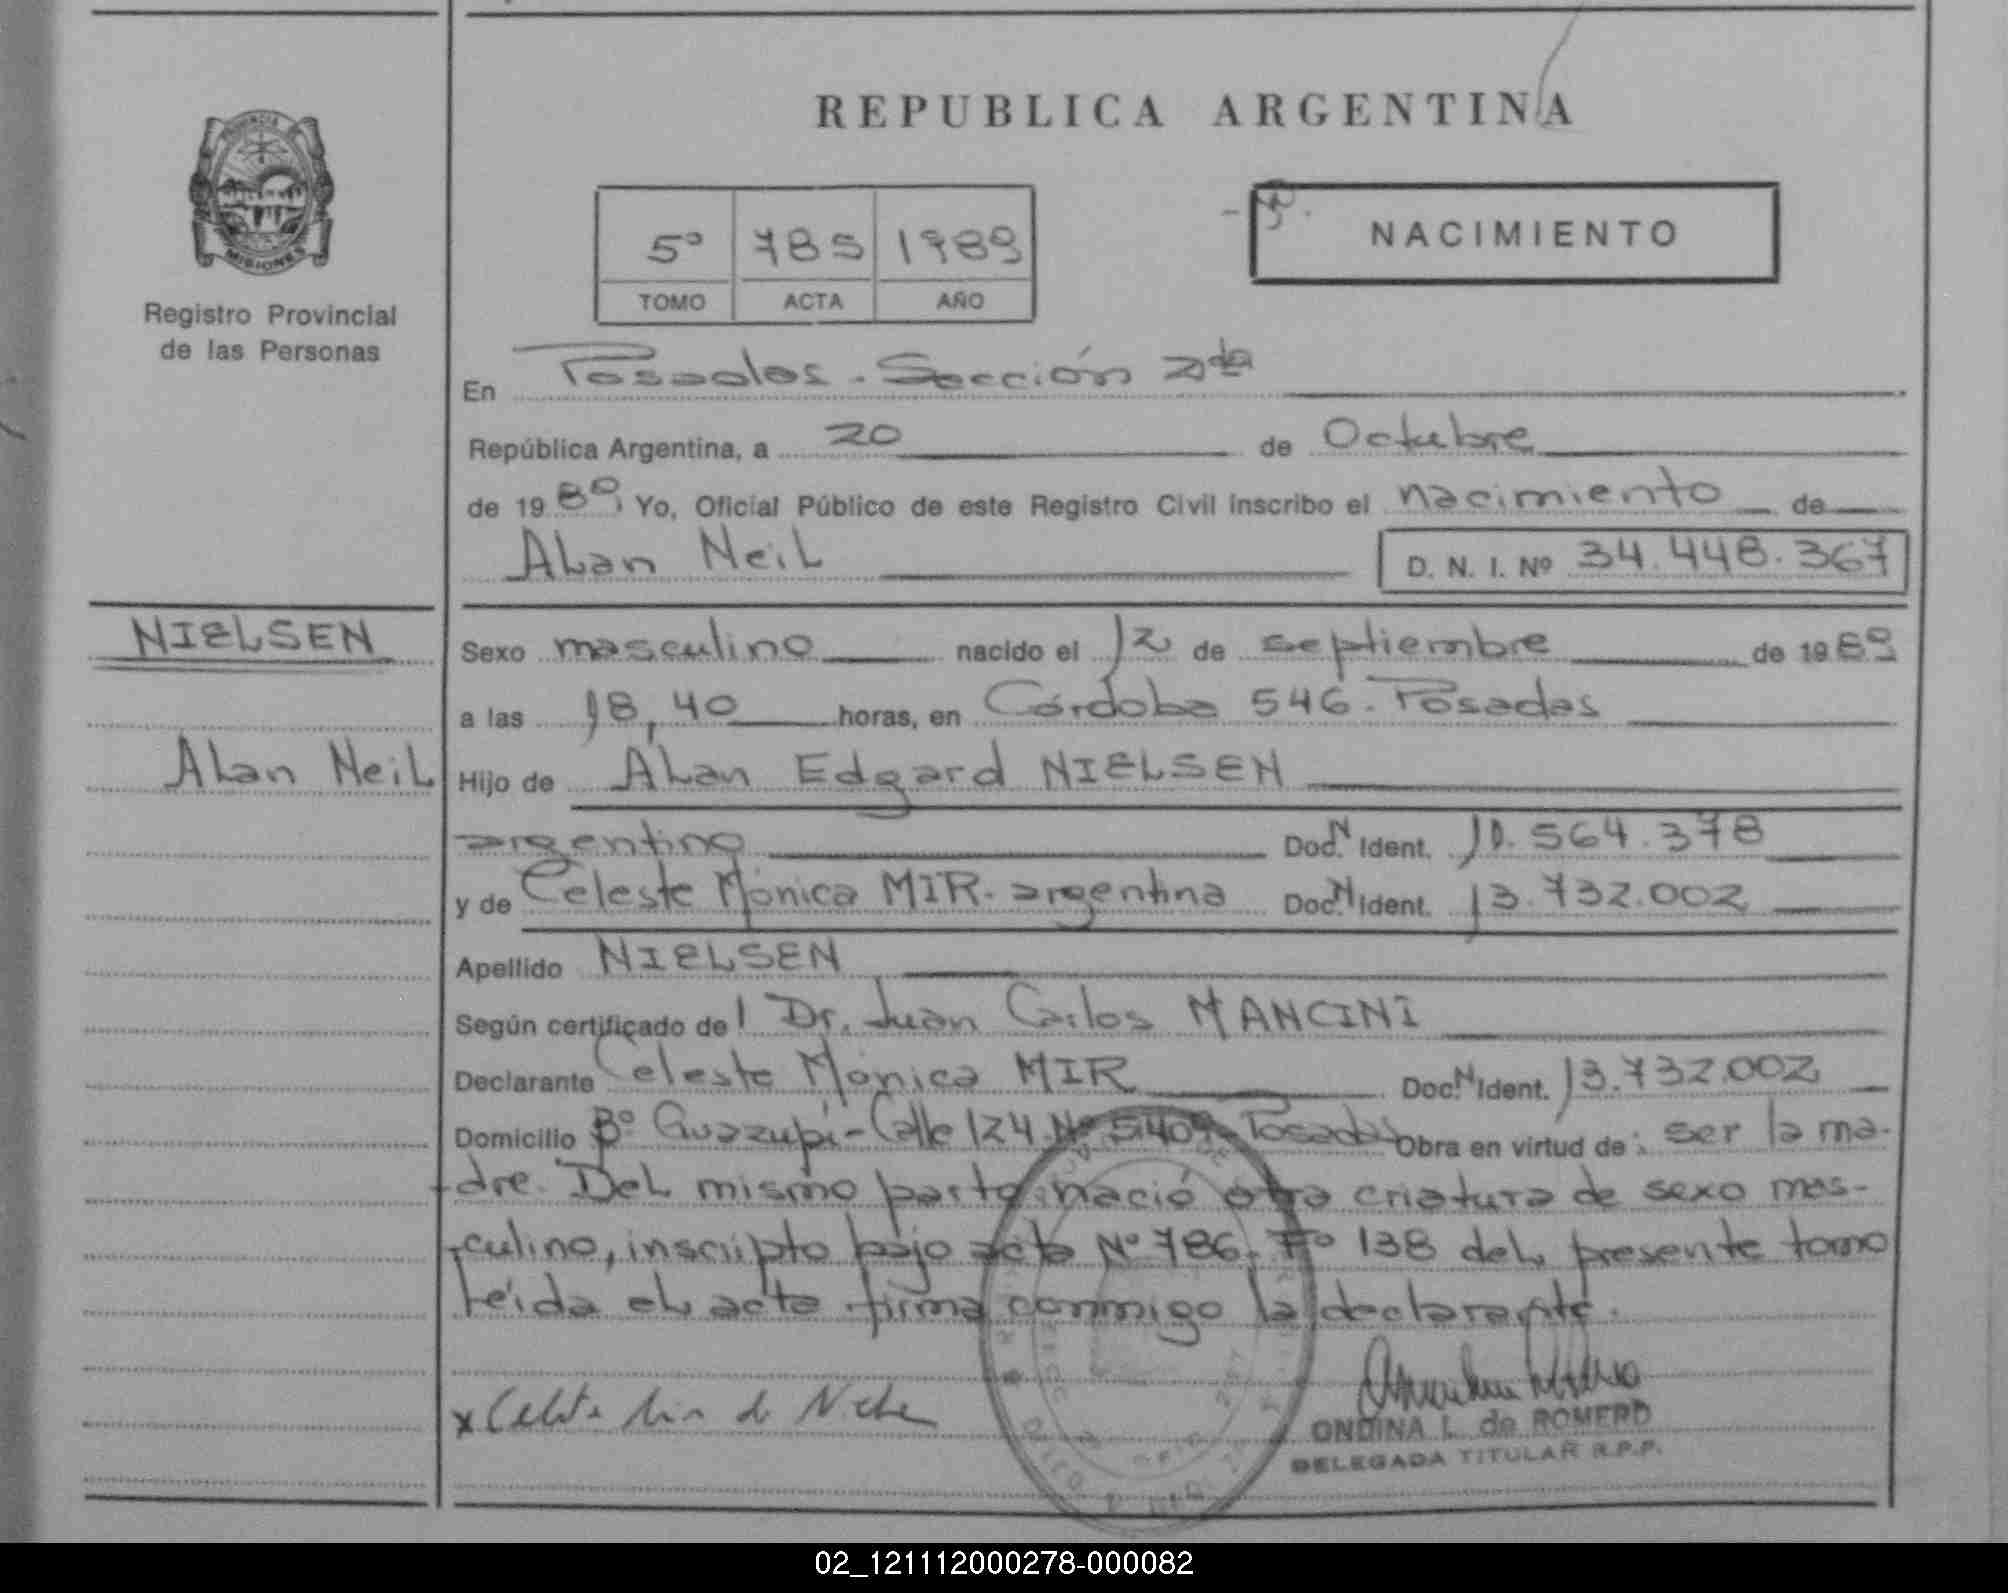 REPUBLICA ARGENTINA
PROVINCIA
MISIONES
Registro Provincial
de las Personas
5º 785 1989
TOMO ACTA AÑO
NACIMIENTO
En Posadas. Sección 2da
República Argentina, a 20 de Octubre
de 1989 Yo, Oficial Público de este Registro Civil inscribo el nacimiento de
Alan Neil D. N. I. Nº 34.448.367
NIELSEN
Alan Neil
Sexo masculino nacido el 12 de septiembre de 1989
a las 18,40 horas, en Córdoba 546. Posadas
Hijo de Alan Edgard NIELSEN
argentino Doc. N Ident. 10.564.378
y de Celeste Mónica MIR. argentina Doc. N Ident. 13.732.002
Apellido NIELSEN
Según certificado del Dr. Juan Carlos MANCINI
Declarante Celeste Mónica MIR Doc. N Ident. 13.732.002
Domicilio Bº Guazupi - Calle 124 Nº 5409 Posadas Obra en virtud de: ser la ma-
dre. Del mismo parto nació otra criatura de sexo mas-
culino, inscripto bajo acta Nº 786. Fº 138 del presente tomo
Leída el acta firma conmigo la declarante.
x Celeste Mir de Nielsen
ONDINA L. de ROMERO
DELEGADA TITULAR R.P.P.
02_121112000278-000082